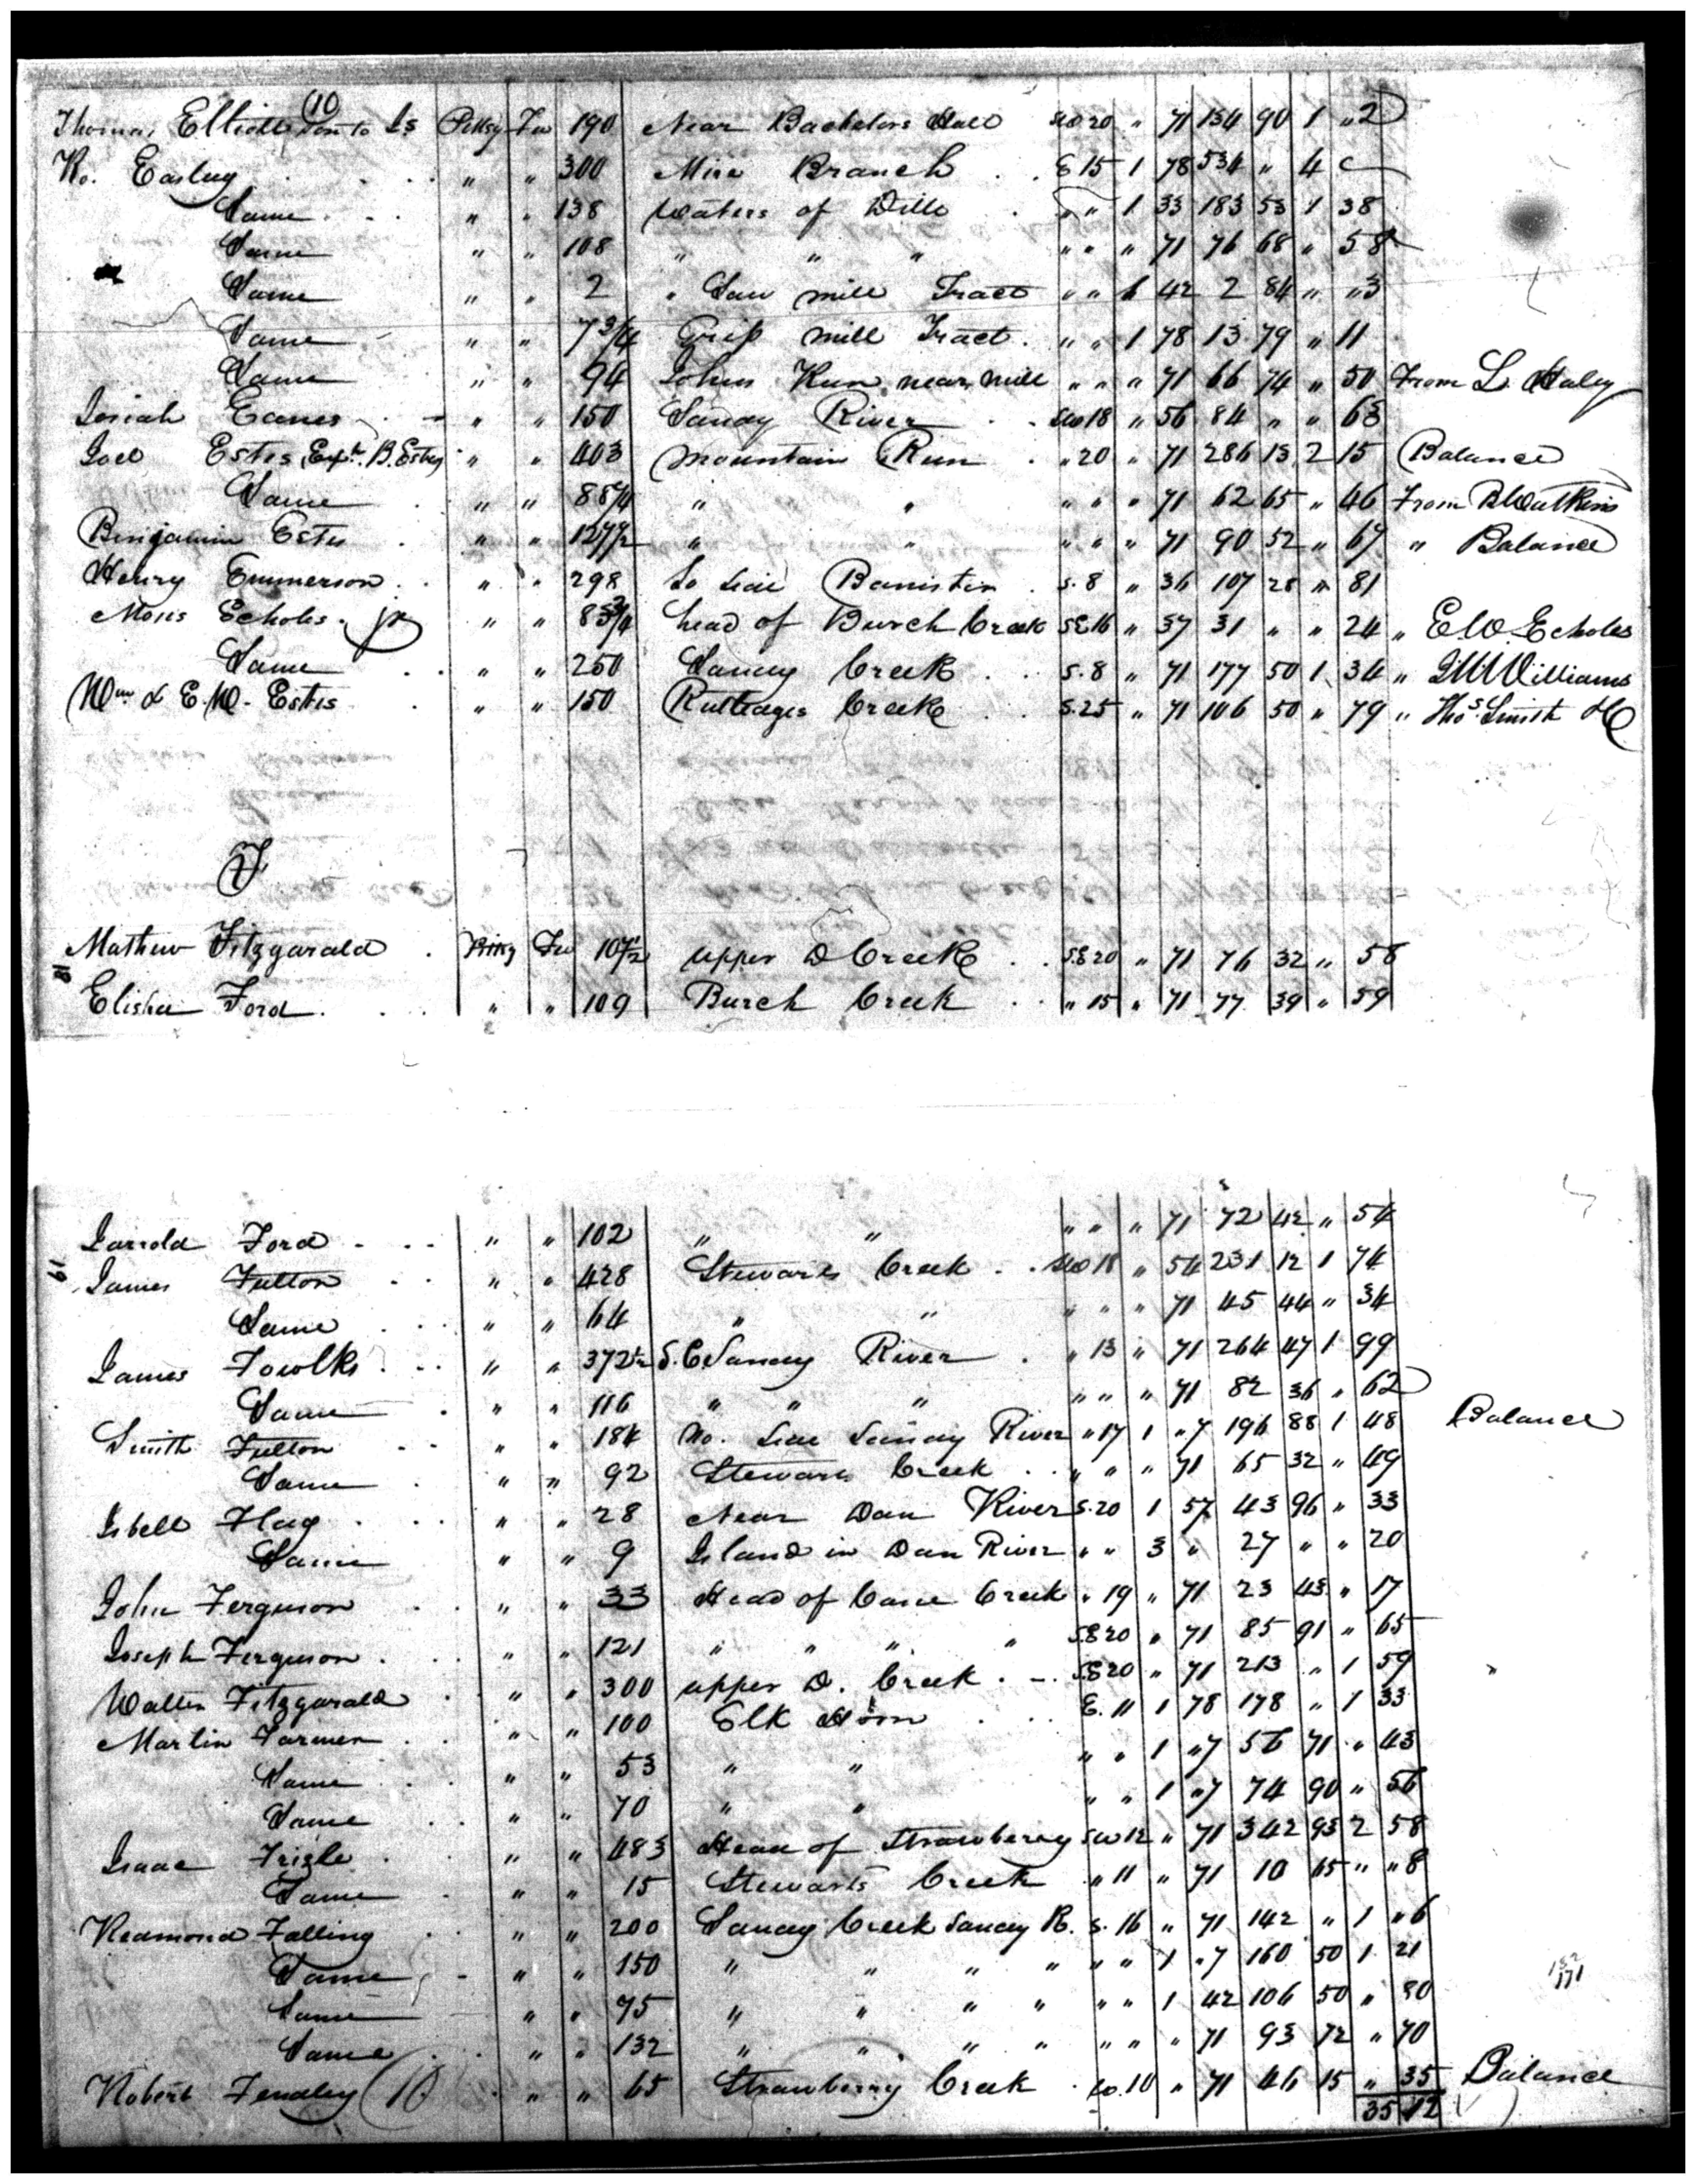 (10
Thomas Elliott Son to Js Pittsy Fee 190 Near Bachelors Hall SW 20 " 71 134 90 1 "2
Ro. Easley " " 300 Mire Branch E 15 1 78 534 " 4
Same " " 138 Waters of Dills " " 1 33 183 53 1 38
Same " " 108 " " " " " " 71 76 68 " 58
Same " " 2 " Saw mill Tract " " 1 42 2 84 " "3
Same " " 7 3/4 Grist mill Tract " " 1 78 13 79 " 11
Same " " 94 Johns Run near mill " " " 71 66 74 " 50 From L. Haley
Josiah Eanes " " 150 Sandy River SW 18 " 56 84 " " 63
Joel Estes Exr. B. Estes " " 403 Mountain Run " 20 " 71 286 13 2 15 Balance
Same " " 88 1/4 " " " " " 71 62 65 " 46 From B Watkins
Benjamin Estes " " 127 1/2 " " " " " 71 90 52 " 67 " Balance
Henry Emmerson " " 298 So side Banister S. 8 " 36 107 28 " 81
Moses Echols jr " " 83 3/4 head of Burch Creek SE 16 " 37 31 " " 24 " E W. Echoles
Same " " 250 Sandy Creek S. 8 " 71 177 50 1 34 " J M Williams
Wm & E. W. Estes " " 150 Rutledges Creek S. 25 " 71 106 50 " 79 " Thos. Smith
F
Mathew Fitzgarald Pittsy Fee 107 1/2 upper D Creek SE 20 " 71 76 32 " 58
18
Elisha Ford " " 109 Burch Creek " 15 " 71 77 39 " 59
Jarrold Ford " " 102 " " " " " 71 72 42 " 54
19
James Fulton " " 428 Stewarts Creek SW 18 " 54 231 12 1 74
Same " " 64 " " " " " 71 45 44 " 34
James Fowlks " " 372 1/2 S. C Sandy River " 13 " 71 264 47 1 99
Same " " 116 " " " " " " 71 82 36 " 62
Smith Fulton " " 184 No. side Sandy River " 17 1 "7 196 88 1 48 Balance
Same " " 92 Stewarts Creek " " " 71 65 32 " 49
Isbell Flag " " 28 Near Dan River S. 20 1 57 43 96 " 33
Same " " 9 Island in Dan River " " 3 " 27 " " 20
John Ferguson " " 33 Head of Cane Creek " 19 " 71 23 43 " 17
Joseph Ferguson " " 121 " " " " SE 20 " 71 85 91 " 65
Walter Fitzgarald " " 300 upper D. Creek SE 20 " 71 213 " 1 59
Martin Farmer " " 100 Elk Horn E. 11 1 78 178 " 1 33
Same " " 53 " " " " 1 "7 56 71 " 43
Same " " 70 " " " " 1 "7 74 90 " 56
Isaac Frizle " " 483 Head of Strawberry SW 12 " 71 342 93 2 58
Same " " 15 Stewarts Creek " 11 " 71 10 65 " "8
Redmond Falling " " 200 Sandy Creek Sandy R. S. 16 " 71 142 " 1 "6
Same " " 150 " " " " " " 1 "7 160 50 1 21
Same " " 75 " " " " " " 1 42 106 50 " 80
171
Same " " 132 " " " " " " " 71 93 72 " 70
Robert Fendley (10 " " 65 Strawberry Creek W. 10 " 71 46 15 " 35 Balance
35 12